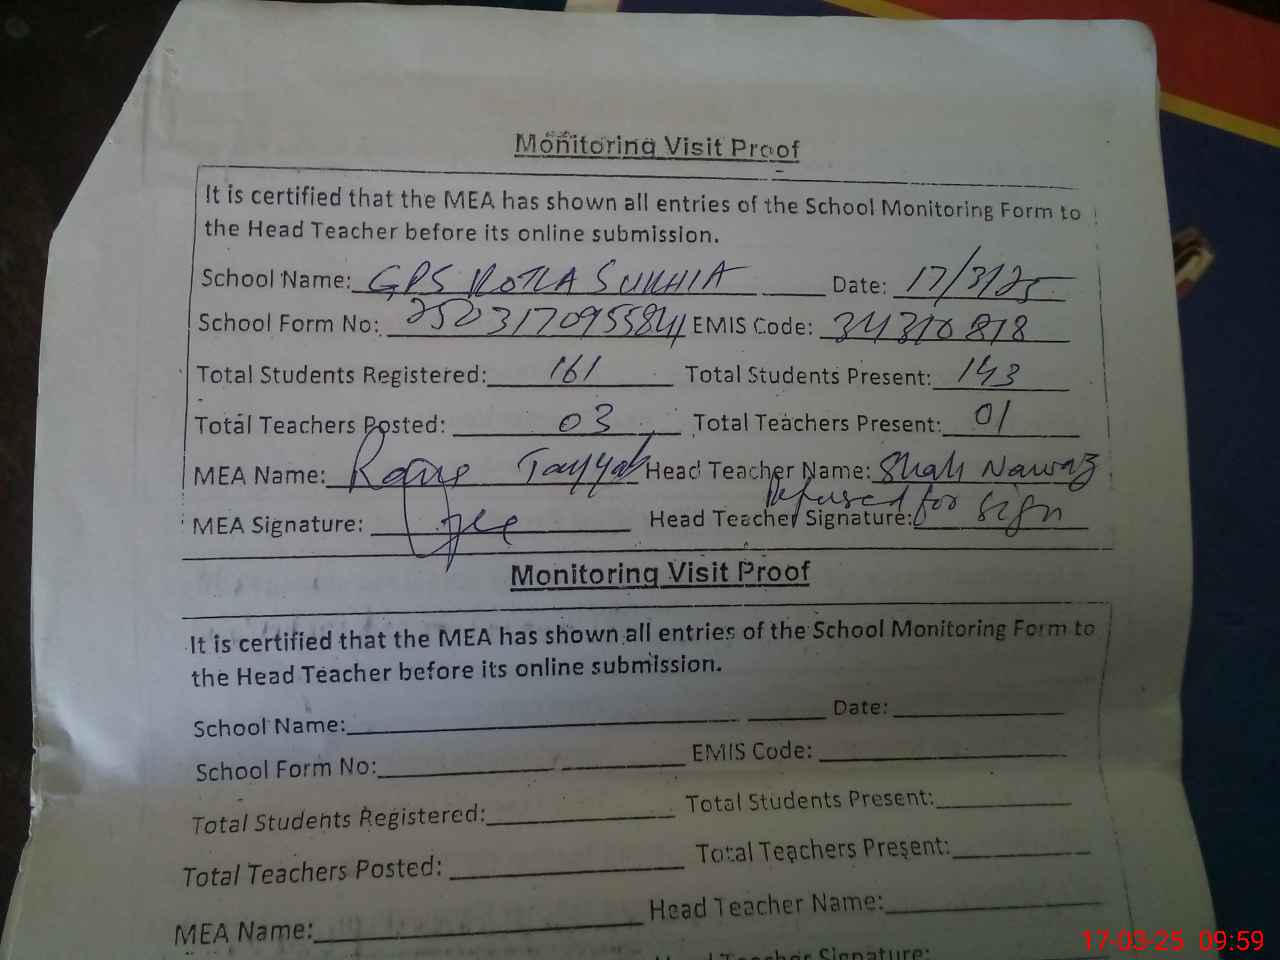 Monitoring Visit Proof
It is certified that the MEA has shown all entries of the School Monitoring Form to
the Head Teacher before its online submission.
School Name: GPS KOTLA SUKHIA Date: 17/3/25
School Form No: 2503170955841 EMIS Code: 34310818
Total Students Registered: 161 Total Students Present: 143
Total Teachers Posted: 03 Total Teachers Present: 01
MEA Name: Tayyab Head Teacher Name: Shah Nawaz
MEA Signature: Head Teacher Signature: Refused for sign
Monitoring Visit Proof
It is certified that the MEA has shown all entries of the School Monitoring Form to
the Head Teacher before its online submission.
School Name: Date:
School Form No: EMIS Code:
Total Students Registered: Total Students Present:
Total Teachers Posted: Total Teachers Present:
MEA Name: Head Teacher Name:
Head Teacher Signature:
17-03-25 09:59